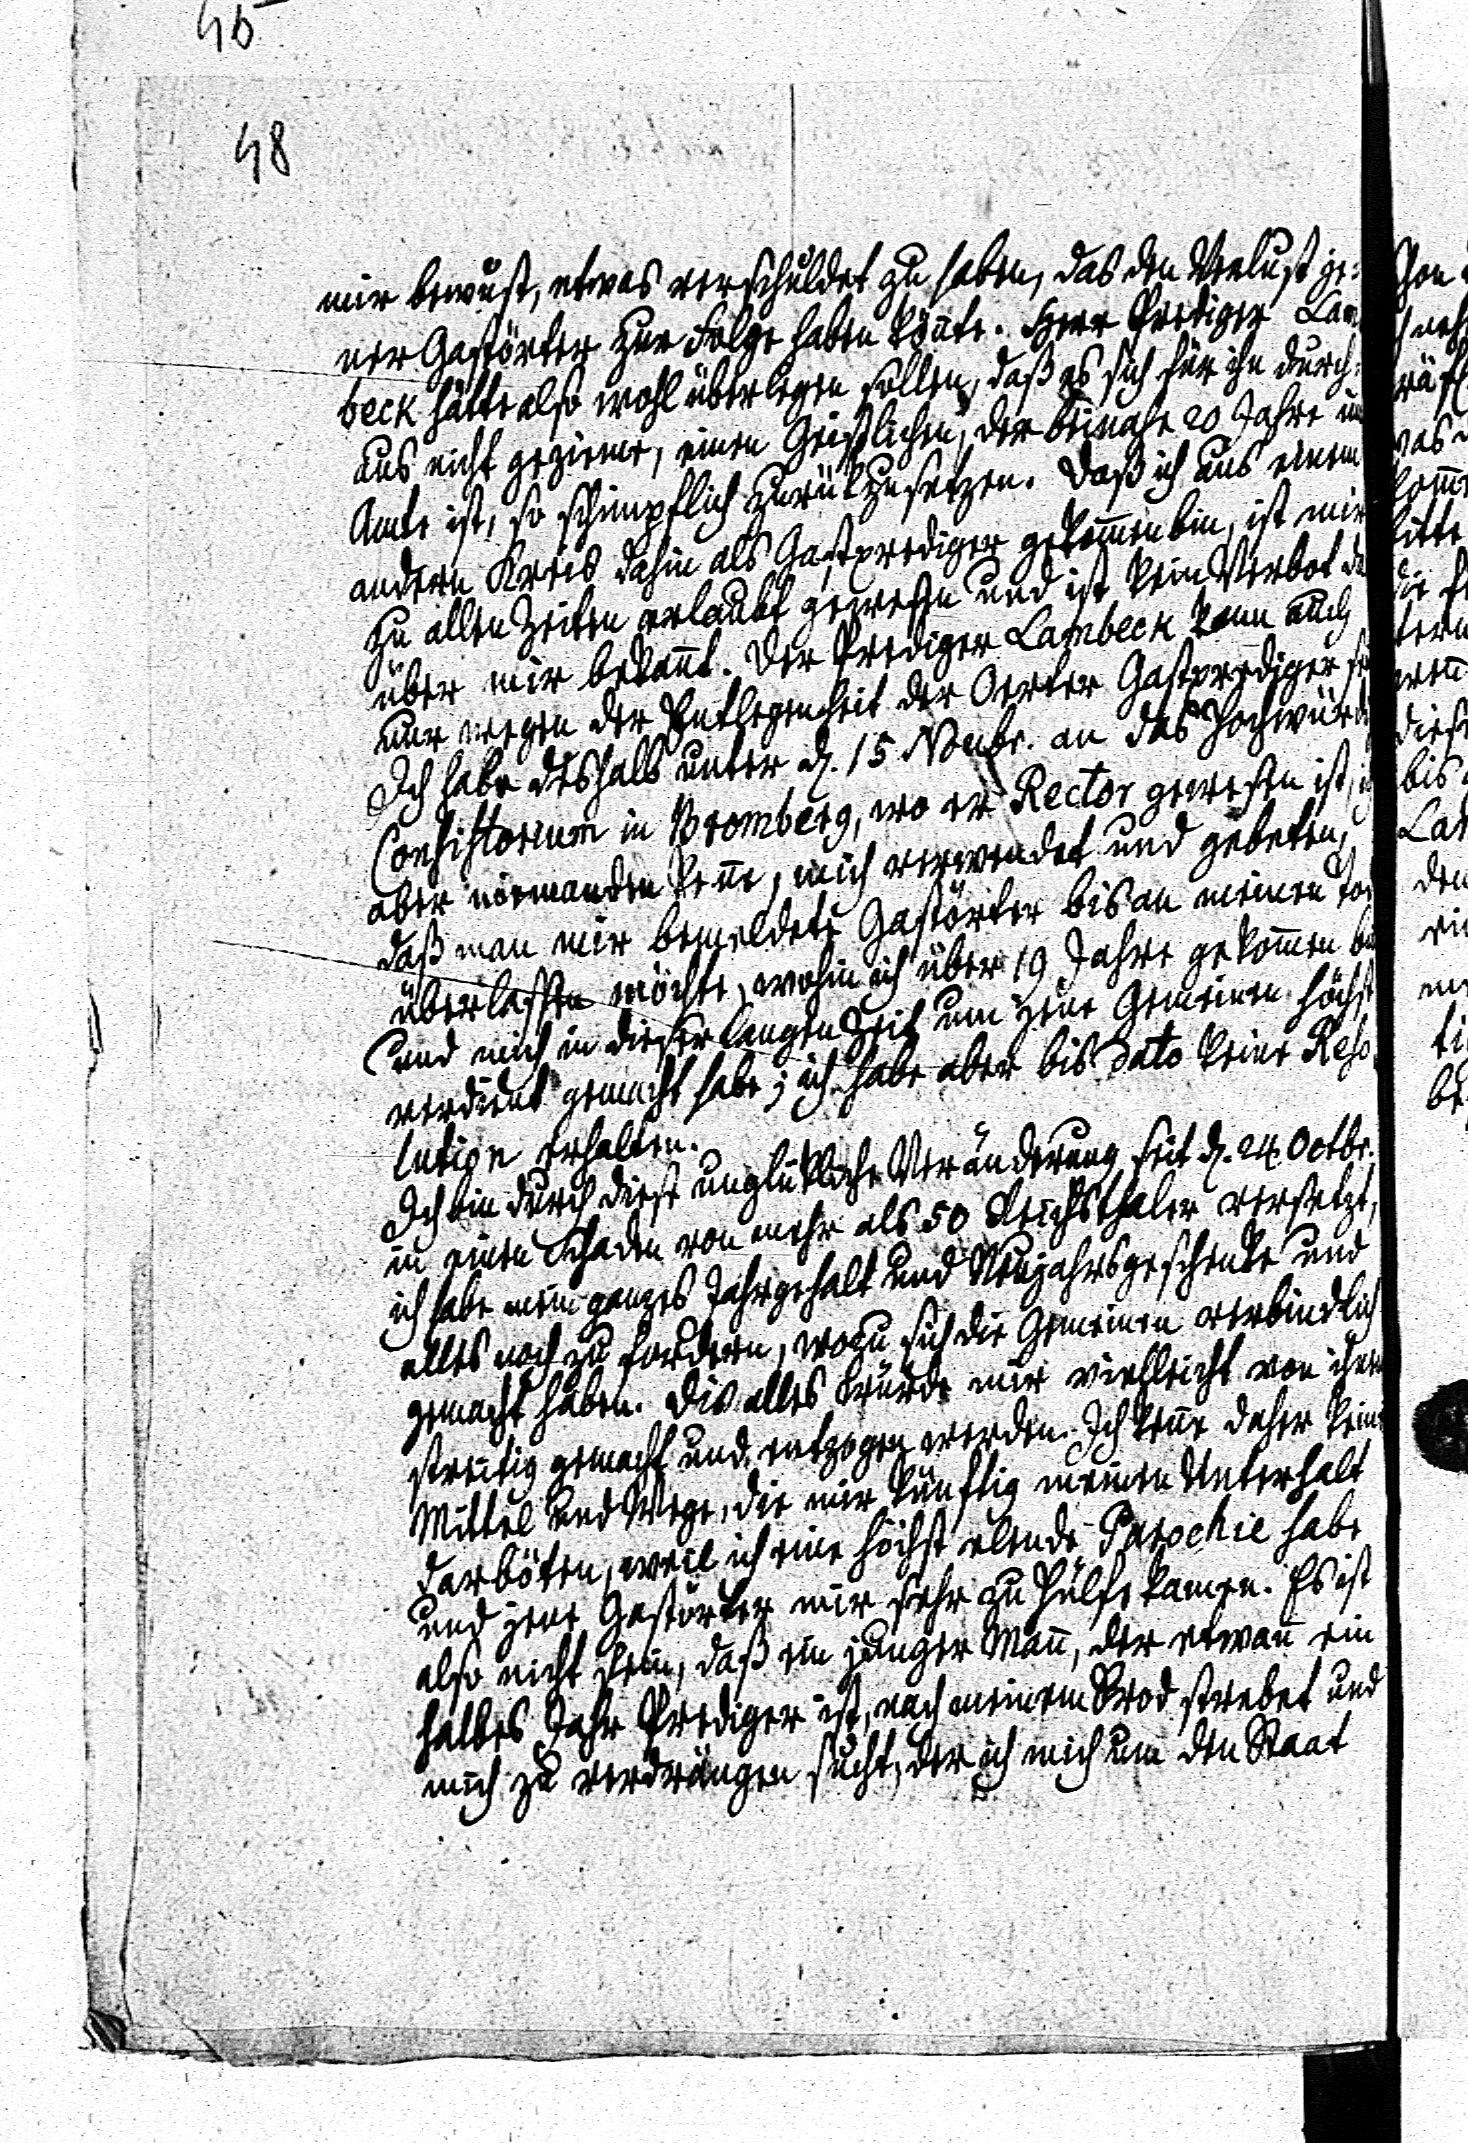 46
48
mir bewust, etwas verschuldet zu haben, das den Verlust je-
ner Gastörter zur Folge haben könte. Herr Prediger Lam
beck hätte also wohl überlegen sollen, daß es sich für ihn durch-
aus nicht gezieme, einen Geistlichen, der beinahe 20 Jahre im
Amte ist, so schimpflich zurükzusetzen. Daß ich aus einem
andern Kreis dahin als Gastprediger gekommen bin, ist mir
zu allen Zeiten erlaubt gewesen und ist kein Verbot da
über mir bekant. Der Prediger Lambeck kann auch
nur wegen der Entlegenheit der Oerter Gastprediger sein
Ich habe deshalb unter d. 15 Novbr. an das Hochwürd
Consistorium in Bromberg, wo er Rector gewesen ist, ich
aber niemanden kene, mich verwendet und gebeten,
daß man mir bemeldete Gastörter bis an meinen Tod
überlassen möchte, wohin ich über 19 Jahre gekommen bin
und mich in dieser langen Zeit um jene Gemeinen höchst
verdient gemacht habe; ich habe aber bis dato keine Reso-
lution erhalten.
Ich bin durch diese unglükliche Veränderung seit d. 24. Octbr.
in einen Schaden von mehr als 50 Reichsthaler versetzt,
ich habe mein ganzes Jahrgehalt und Neujahrsgeschenke und
alles noch zu fordern, wozu sich die Gemeinen verbindlich
gemacht haben. Dis alles würde mir vielleicht von ihnen
streitig gemacht und entzogen werden. Ich kene daher keine
Mittel und Wege, die mir künftig meinen Unterhalt
darböten, weil ich eine höchst elende Parochie habe
und jene Gastörter mir sehr zu Hülfe kamen. Es ist
also nicht fein, daß ein junger Man, der etwan ein
halbes Jahr Prediger ist, nach meinem Brod strebet und
mich zu verdrängen sucht, der ich mich um den Staat